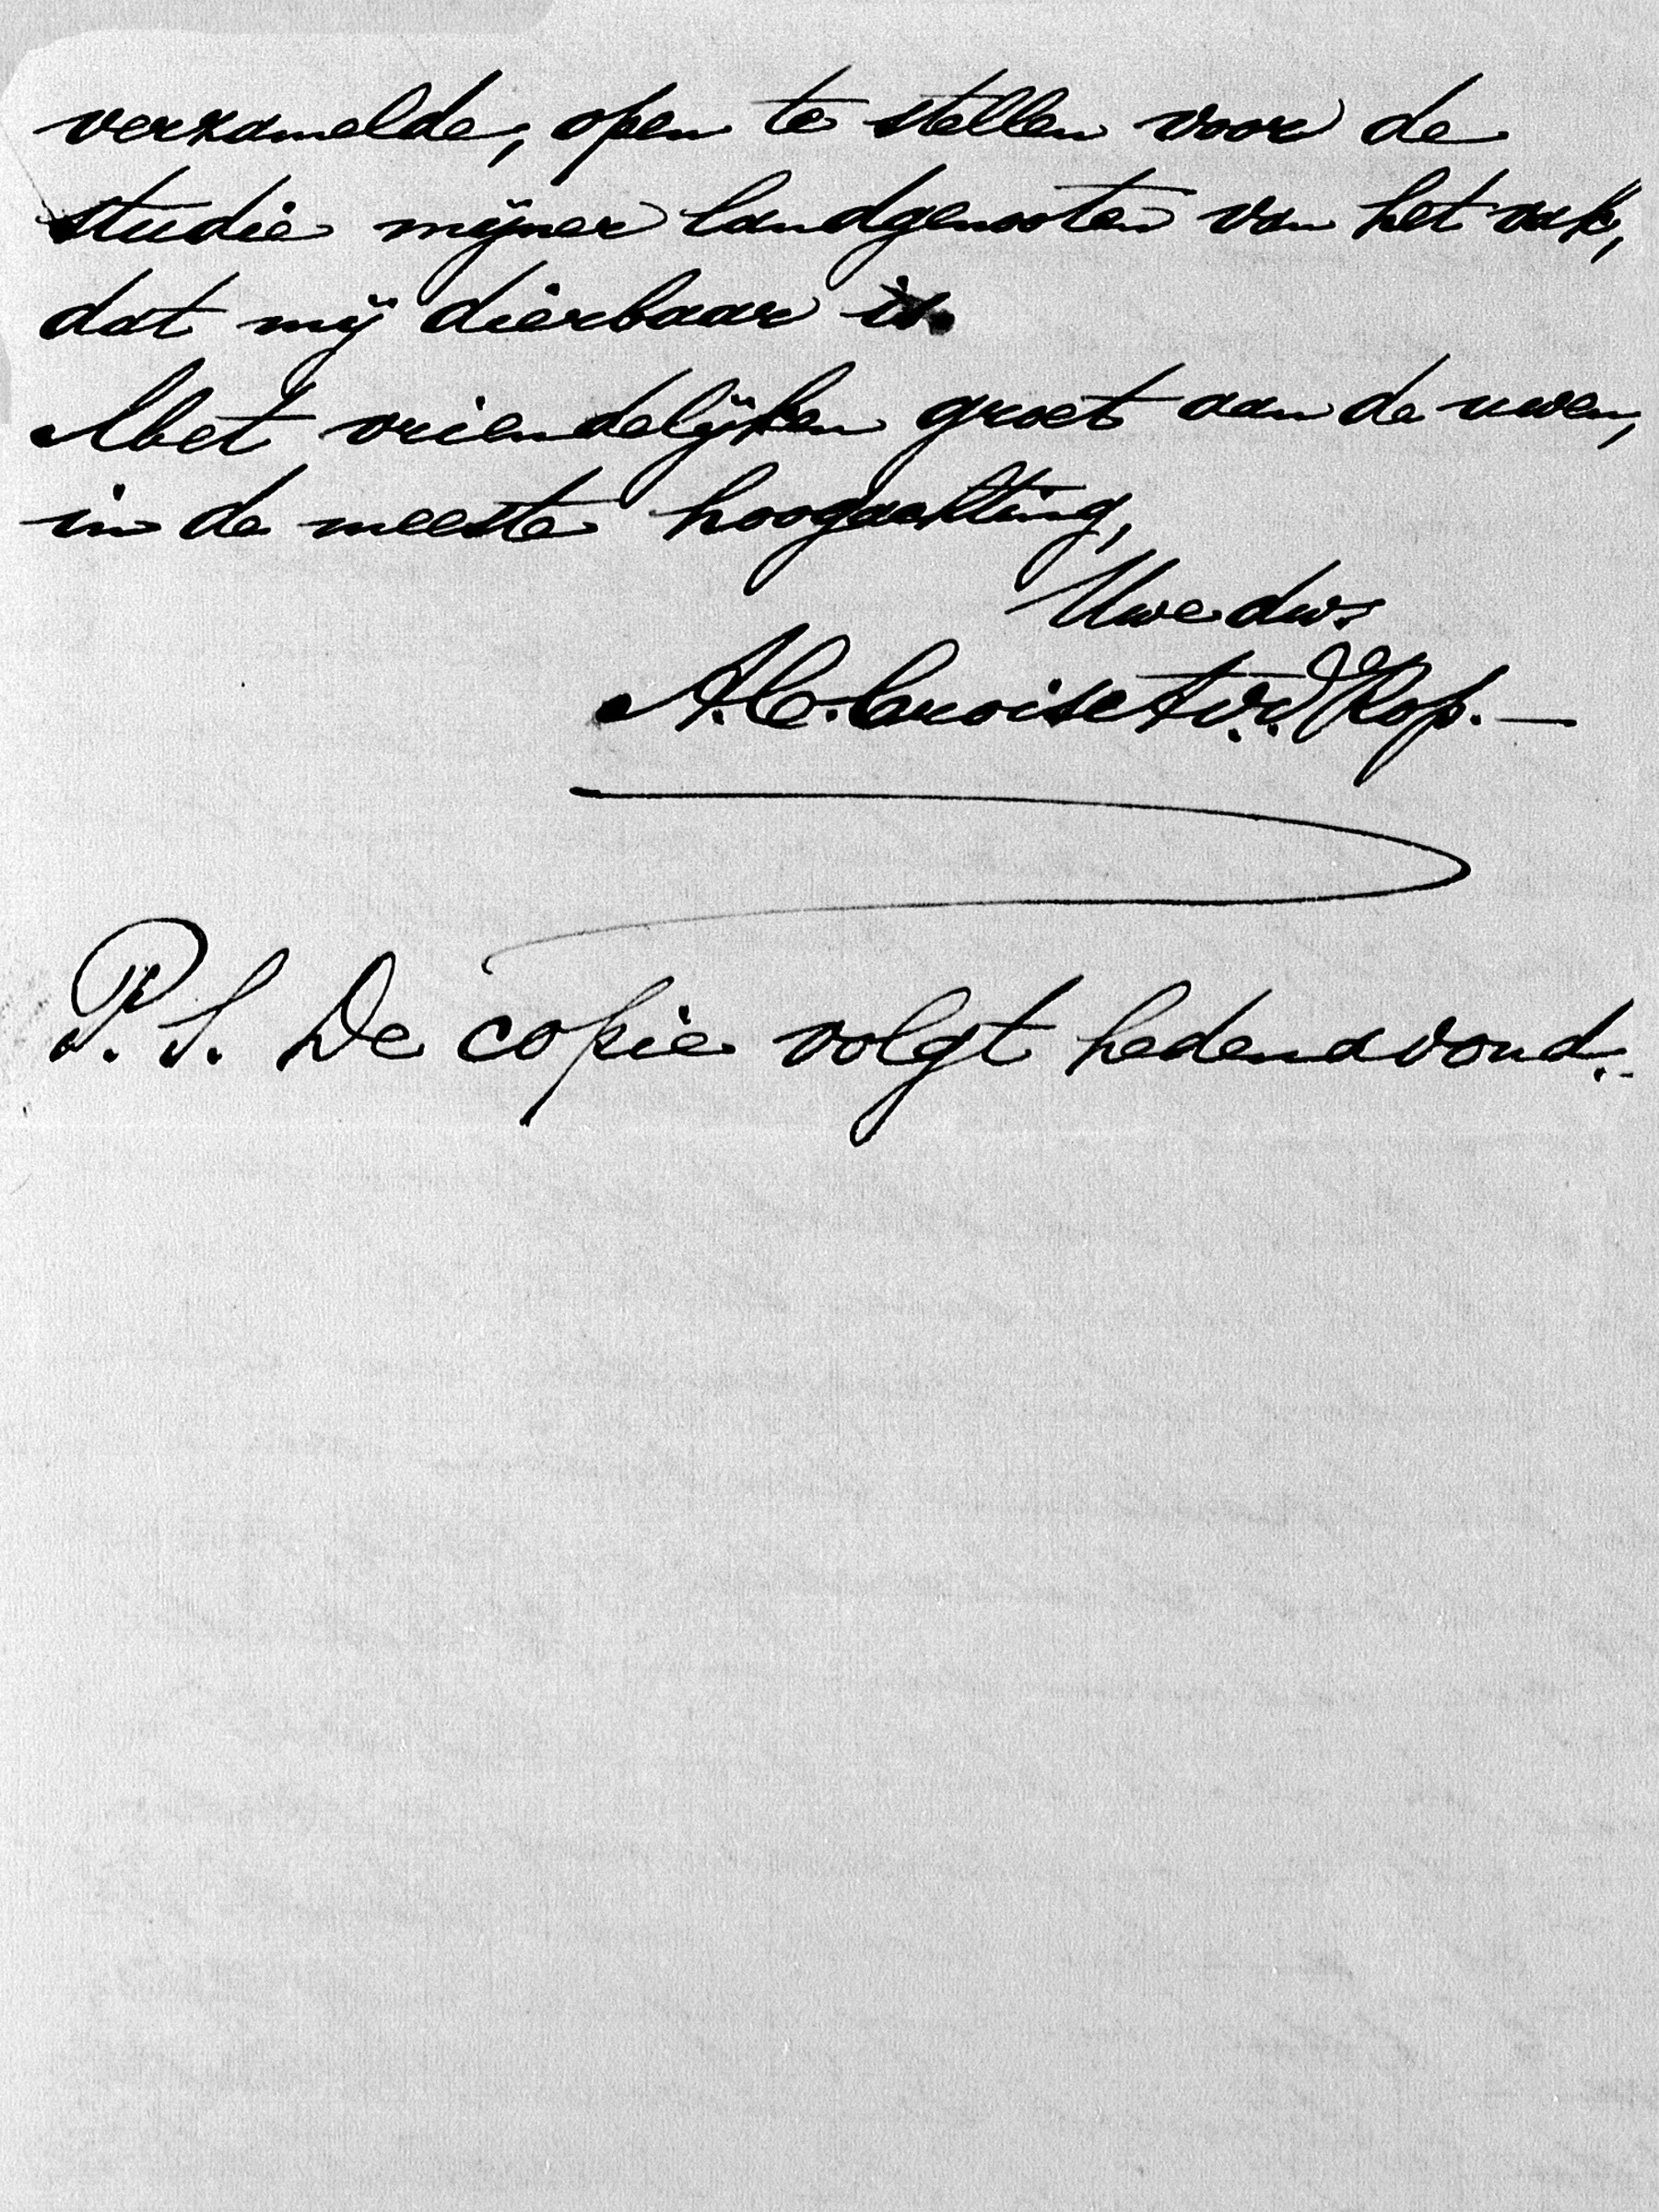 verzamelde, open te stellen voor de
studie mijner landgenooten van het vak,
dat mij dierbaar is.
Met vriendelijken groet aan de uwen,
in de meeste hoogachting,
Uwe dw.
A.C. Croiset v.d. Kop. —
P.S. De copie volgt hedenavond.